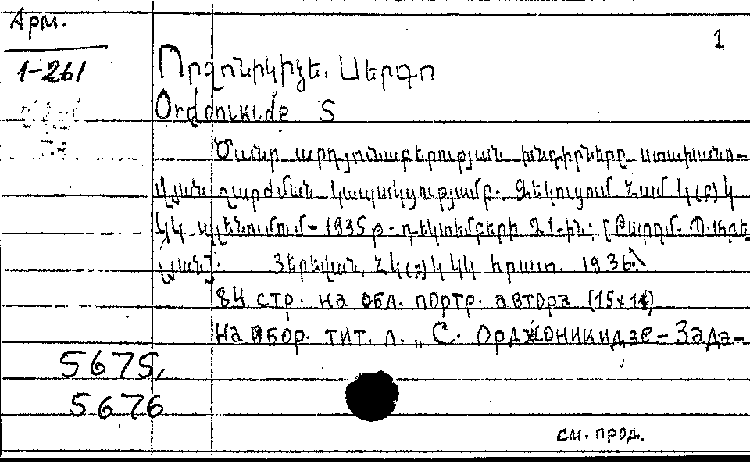 Арм.
1
1-261
Օրջոնիկիձե. Սերգո
Ordoniкidze S
Ծանր արդյունաբերության խնդիրները ստախանո-
վյան շարժման կապակցությամբ. Զեկուցում Համ Կ(բ)Կ
ԿԿ պլենումում - 1935թ - դեկտեմբերի 21-ին: [Թարգմ.
Յերեվան, ՀԿ(բ)Կ ԿԿ հրատ. 1936.
84 стр. на обл. портр. автора (15х11)
На обор. тит. л. „С. Орджоникидзе – Зада-
5675,
5676
см. прод.